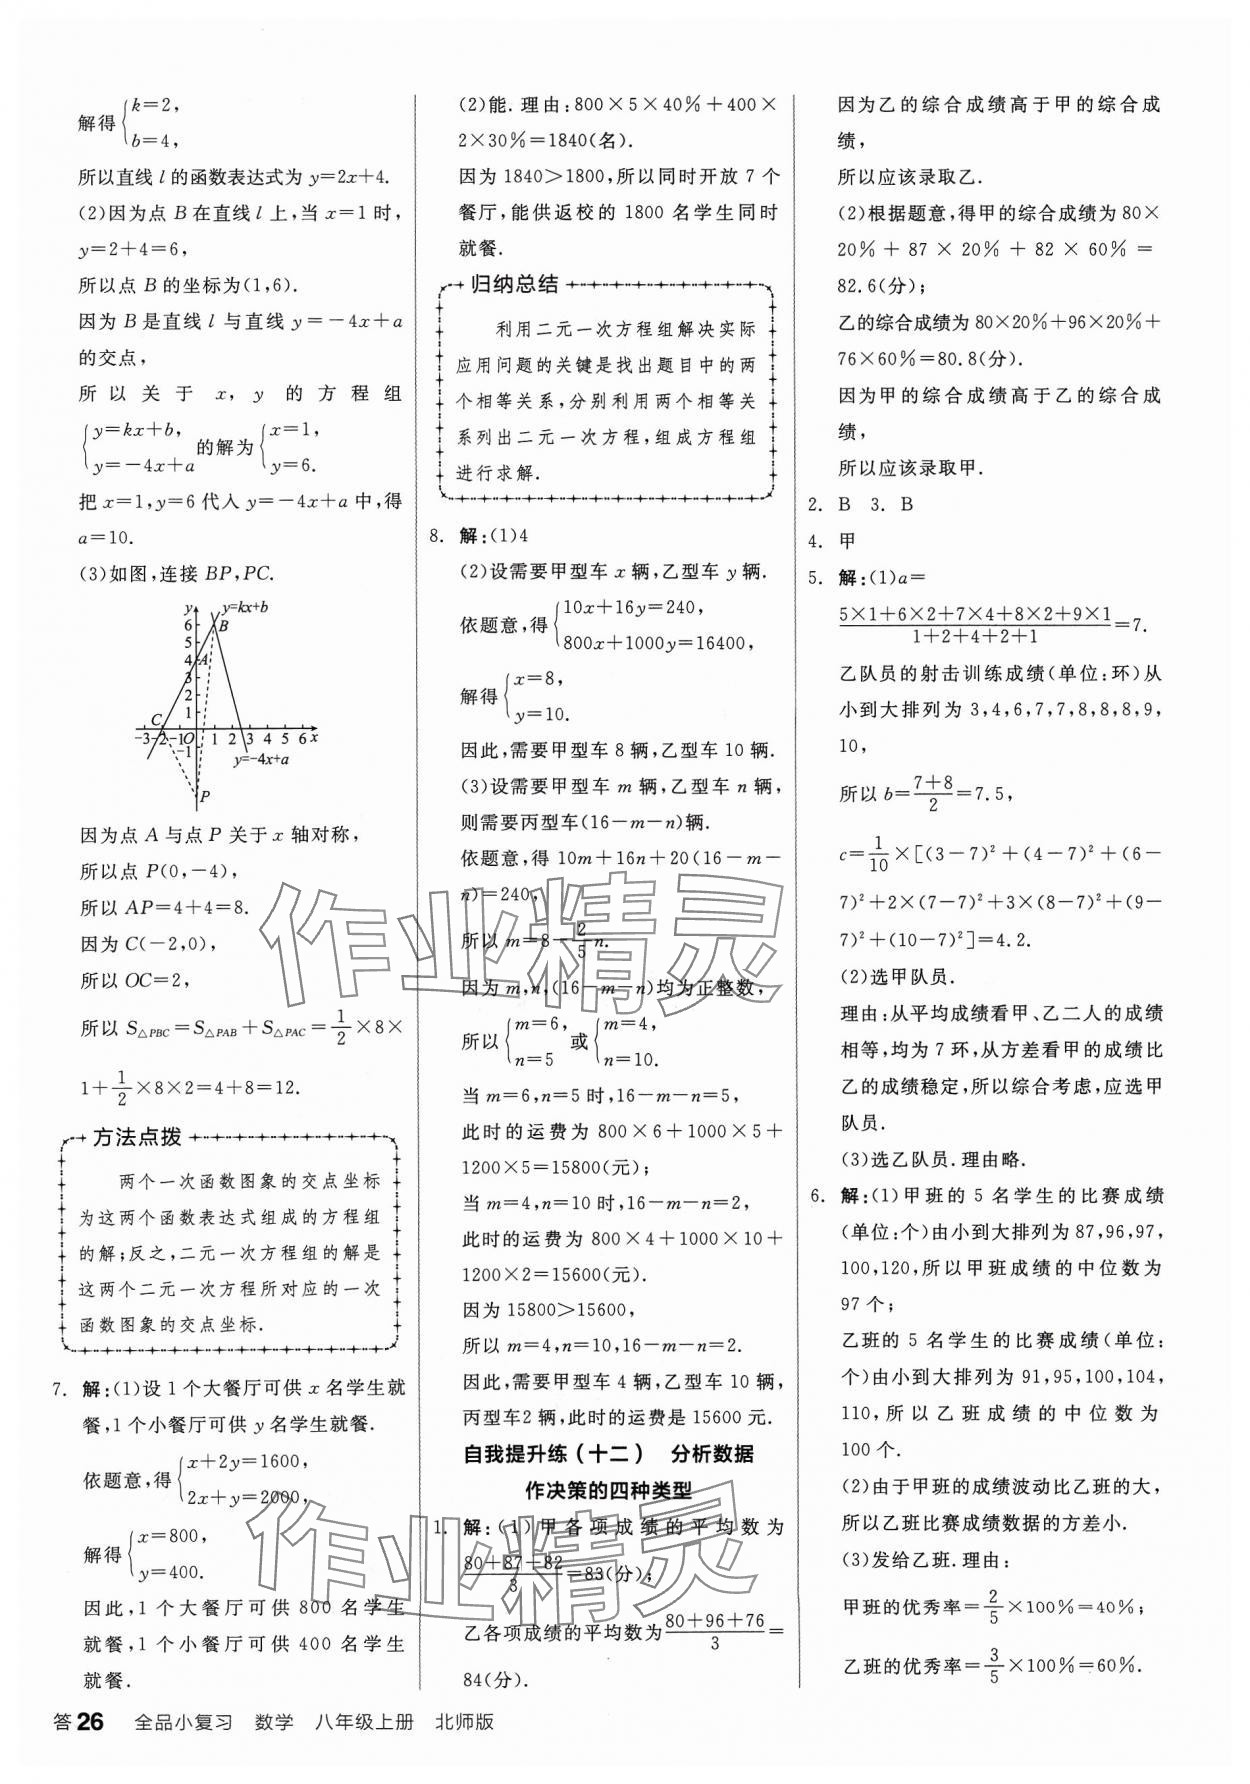 解得{k=2,
b=4,
所以直线 l 的函数表达式为 y=2x+4.
(2)因为点 B 在直线 l 上,当 x=1 时,
y=2+4=6,
所以点 B 的坐标为(1,6).
因为 B 是直线 l 与直线 y=-4x+a
的交点,
所以关于 x, y 的方程组
{y=kx+b,
y=-4x+a 的解为{x=1,
y=6.
把 x=1,y=6 代入 y=-4x+a 中,得
a=10.
(3)如图,连接 BP,PC.
y y=kx+b
6 B
5
4 A
3
2
C 1
-3 -2 -1 O 1 2 3 4 5 6 x
-1
y=-4x+a
P
因为点 A 与点 P 关于 x 轴对称,
所以点 P(0,-4),
所以 AP=4+4=8.
因为 C(-2,0),
所以 OC=2,
所以 S△PBC=S△PAB+S△PAC=1/2×8×
1+1/2×8×2=4+8=12.
方法点拨
两个一次函数图象的交点坐标
为这两个函数表达式组成的方程组
的解;反之,二元一次方程组的解是
这两个二元一次方程所对应的一次
函数图象的交点坐标.
7. 解:(1)设 1 个大餐厅可供 x 名学生就
餐,1 个小餐厅可供 y 名学生就餐.
依题意,得{x+2y=1600,
2x+y=2000,
解得{x=800,
y=400.
因此,1 个大餐厅可供 800 名学生
就餐,1 个小餐厅可供 400 名学生
就餐.
(2)能.理由:800×5×40%+400×
2×30%=1840(名).
因为 1840>1800,所以同时开放 7 个
餐厅,能供返校的 1800 名学生同时
就餐.
归纳总结
利用二元一次方程组解决实际
应用问题的关键是找出题目中的两
个相等关系,分别利用两个相等关
系列出二元一次方程,组成方程组
进行求解.
8. 解:(1)4
(2)设需要甲型车 x 辆,乙型车 y 辆.
依题意,得{10x+16y=240,
800x+1000y=16400,
解得{x=8,
y=10.
因此,需要甲型车 8 辆,乙型车 10 辆.
(3)设需要甲型车 m 辆,乙型车 n 辆,
则需要丙型车(16-m-n)辆.
依题意,得 10m+16n+20(16-m-
n)=240,
所以 m=8-2/5n.
因为 m,n,(16-m-n)均为正整数,
所以{m=6,
n=5 或{m=4,
n=10.
当 m=6,n=5 时,16-m-n=5,
此时的运费为 800×6+1000×5+
1200×5=15800(元);
当 m=4,n=10 时,16-m-n=2,
此时的运费为 800×4+1000×10+
1200×2=15600(元).
因为 15800>15600,
所以 m=4,n=10,16-m-n=2.
因此,需要甲型车 4 辆,乙型车 10 辆,
丙型车2 辆,此时的运费是 15600 元.
自我提升练(十二) 分析数据
作决策的四种类型
1. 解:(1)甲各项成绩的平均数为
(80+87+82)/3=83(分);
乙各项成绩的平均数为(80+96+76)/3=
84(分).
因为乙的综合成绩高于甲的综合成
绩,
所以应该录取乙.
(2)根据题意,得甲的综合成绩为 80×
20%+87×20%+82×60%=
82.6(分);
乙的综合成绩为 80×20%+96×20%+
76×60%=80.8(分).
因为甲的综合成绩高于乙的综合成
绩,
所以应该录取甲.
2. B 3. B
4. 甲
5. 解:(1)a=
(5×1+6×2+7×4+8×2+9×1)/(1+2+4+2+1)=7.
乙队员的射击训练成绩(单位:环)从
小到大排列为 3,4,6,7,7,8,8,8,9,
10,
所以 b=(7+8)/2=7.5,
c=1/10×[(3-7)²+(4-7)²+(6-
7)²+2×(7-7)²+3×(8-7)²+(9-
7)²+(10-7)²]=4.2.
(2)选甲队员.
理由:从平均成绩看甲、乙二人的成绩
相等,均为 7 环,从方差看甲的成绩比
乙的成绩稳定,所以综合考虑,应选甲
队员.
(3)选乙队员.理由略.
6. 解:(1)甲班的 5 名学生的比赛成绩
(单位:个)由小到大排列为 87,96,97,
100,120,所以甲班成绩的中位数为
97 个;
乙班的 5 名学生的比赛成绩(单位:
个)由小到大排列为 91,95,100,104,
110,所以乙班成绩的中位数为
100 个.
(2)由于甲班的成绩波动比乙班的大,
所以乙班比赛成绩数据的方差小.
(3)发给乙班.理由:
甲班的优秀率=2/5×100%=40%;
乙班的优秀率=3/5×100%=60%.
答26 全品小复习 数学 八年级上册 北师版
作业精灵
作业精灵